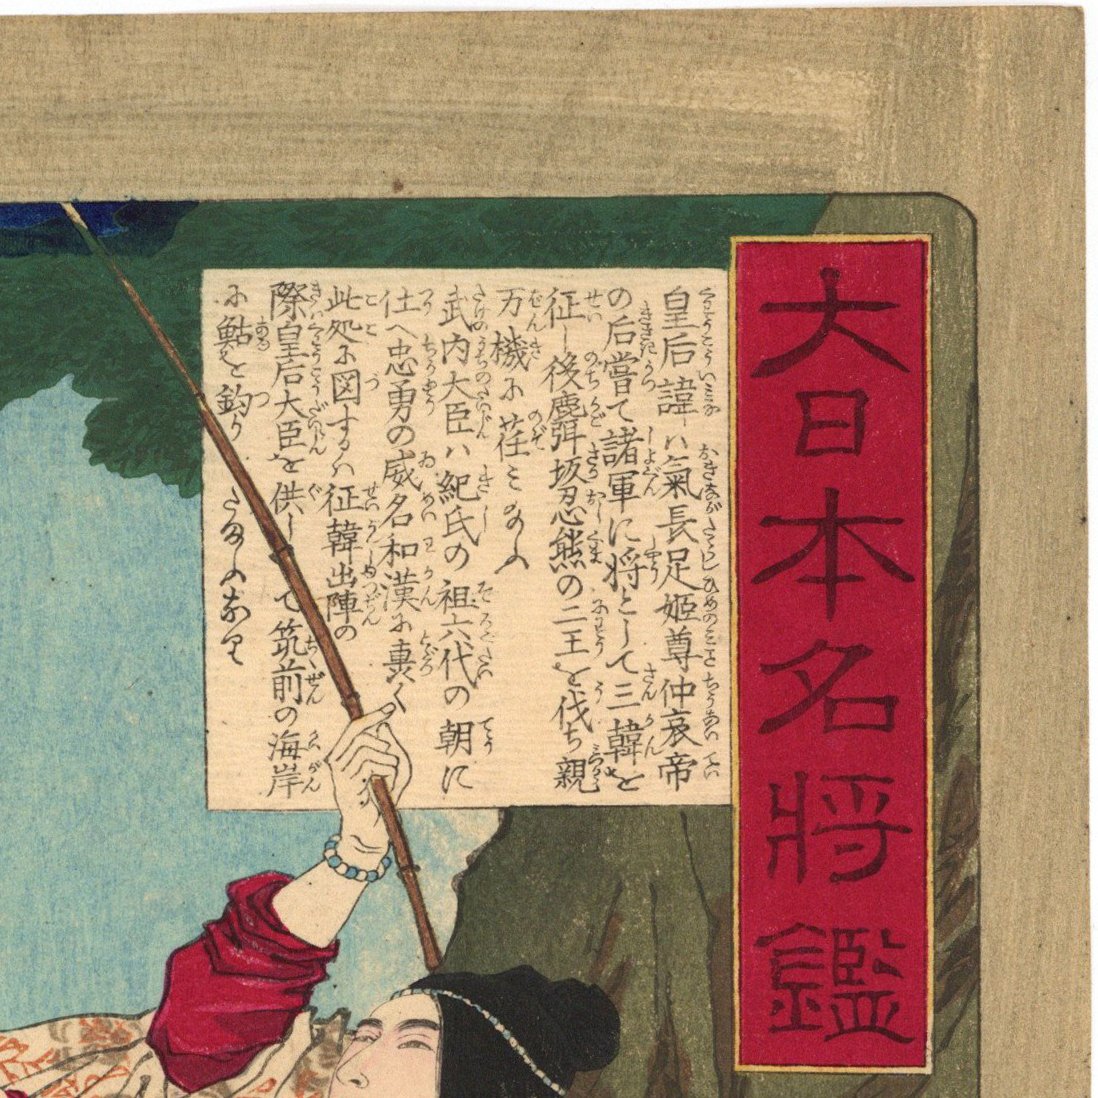 大日本名將鑑
皇后諱ハ氣長足姫尊仲哀帝
の后嘗て諸軍に将として三韓を
征し後麛弭坂忍熊の二王を伐ち親
万機に莅ミ給ふ
武内大臣ハ紀氏の祖六代の朝に
仕へ忠勇の威名和漢に轟く
此処に図するハ征韓出陣の
際皇后大臣を供して筑前の海岸
に鮎を釣り たまふなり